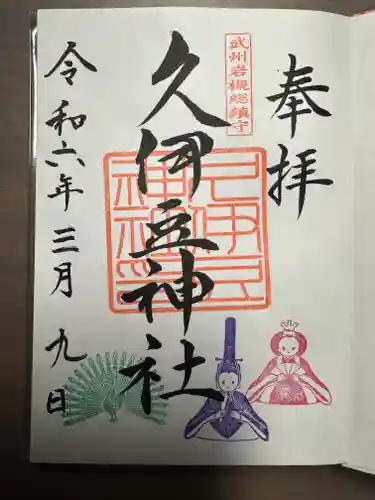 奉拝
武州岩槻総鎮守
久伊豆神社
久伊豆
神社印
令和六年三月九日